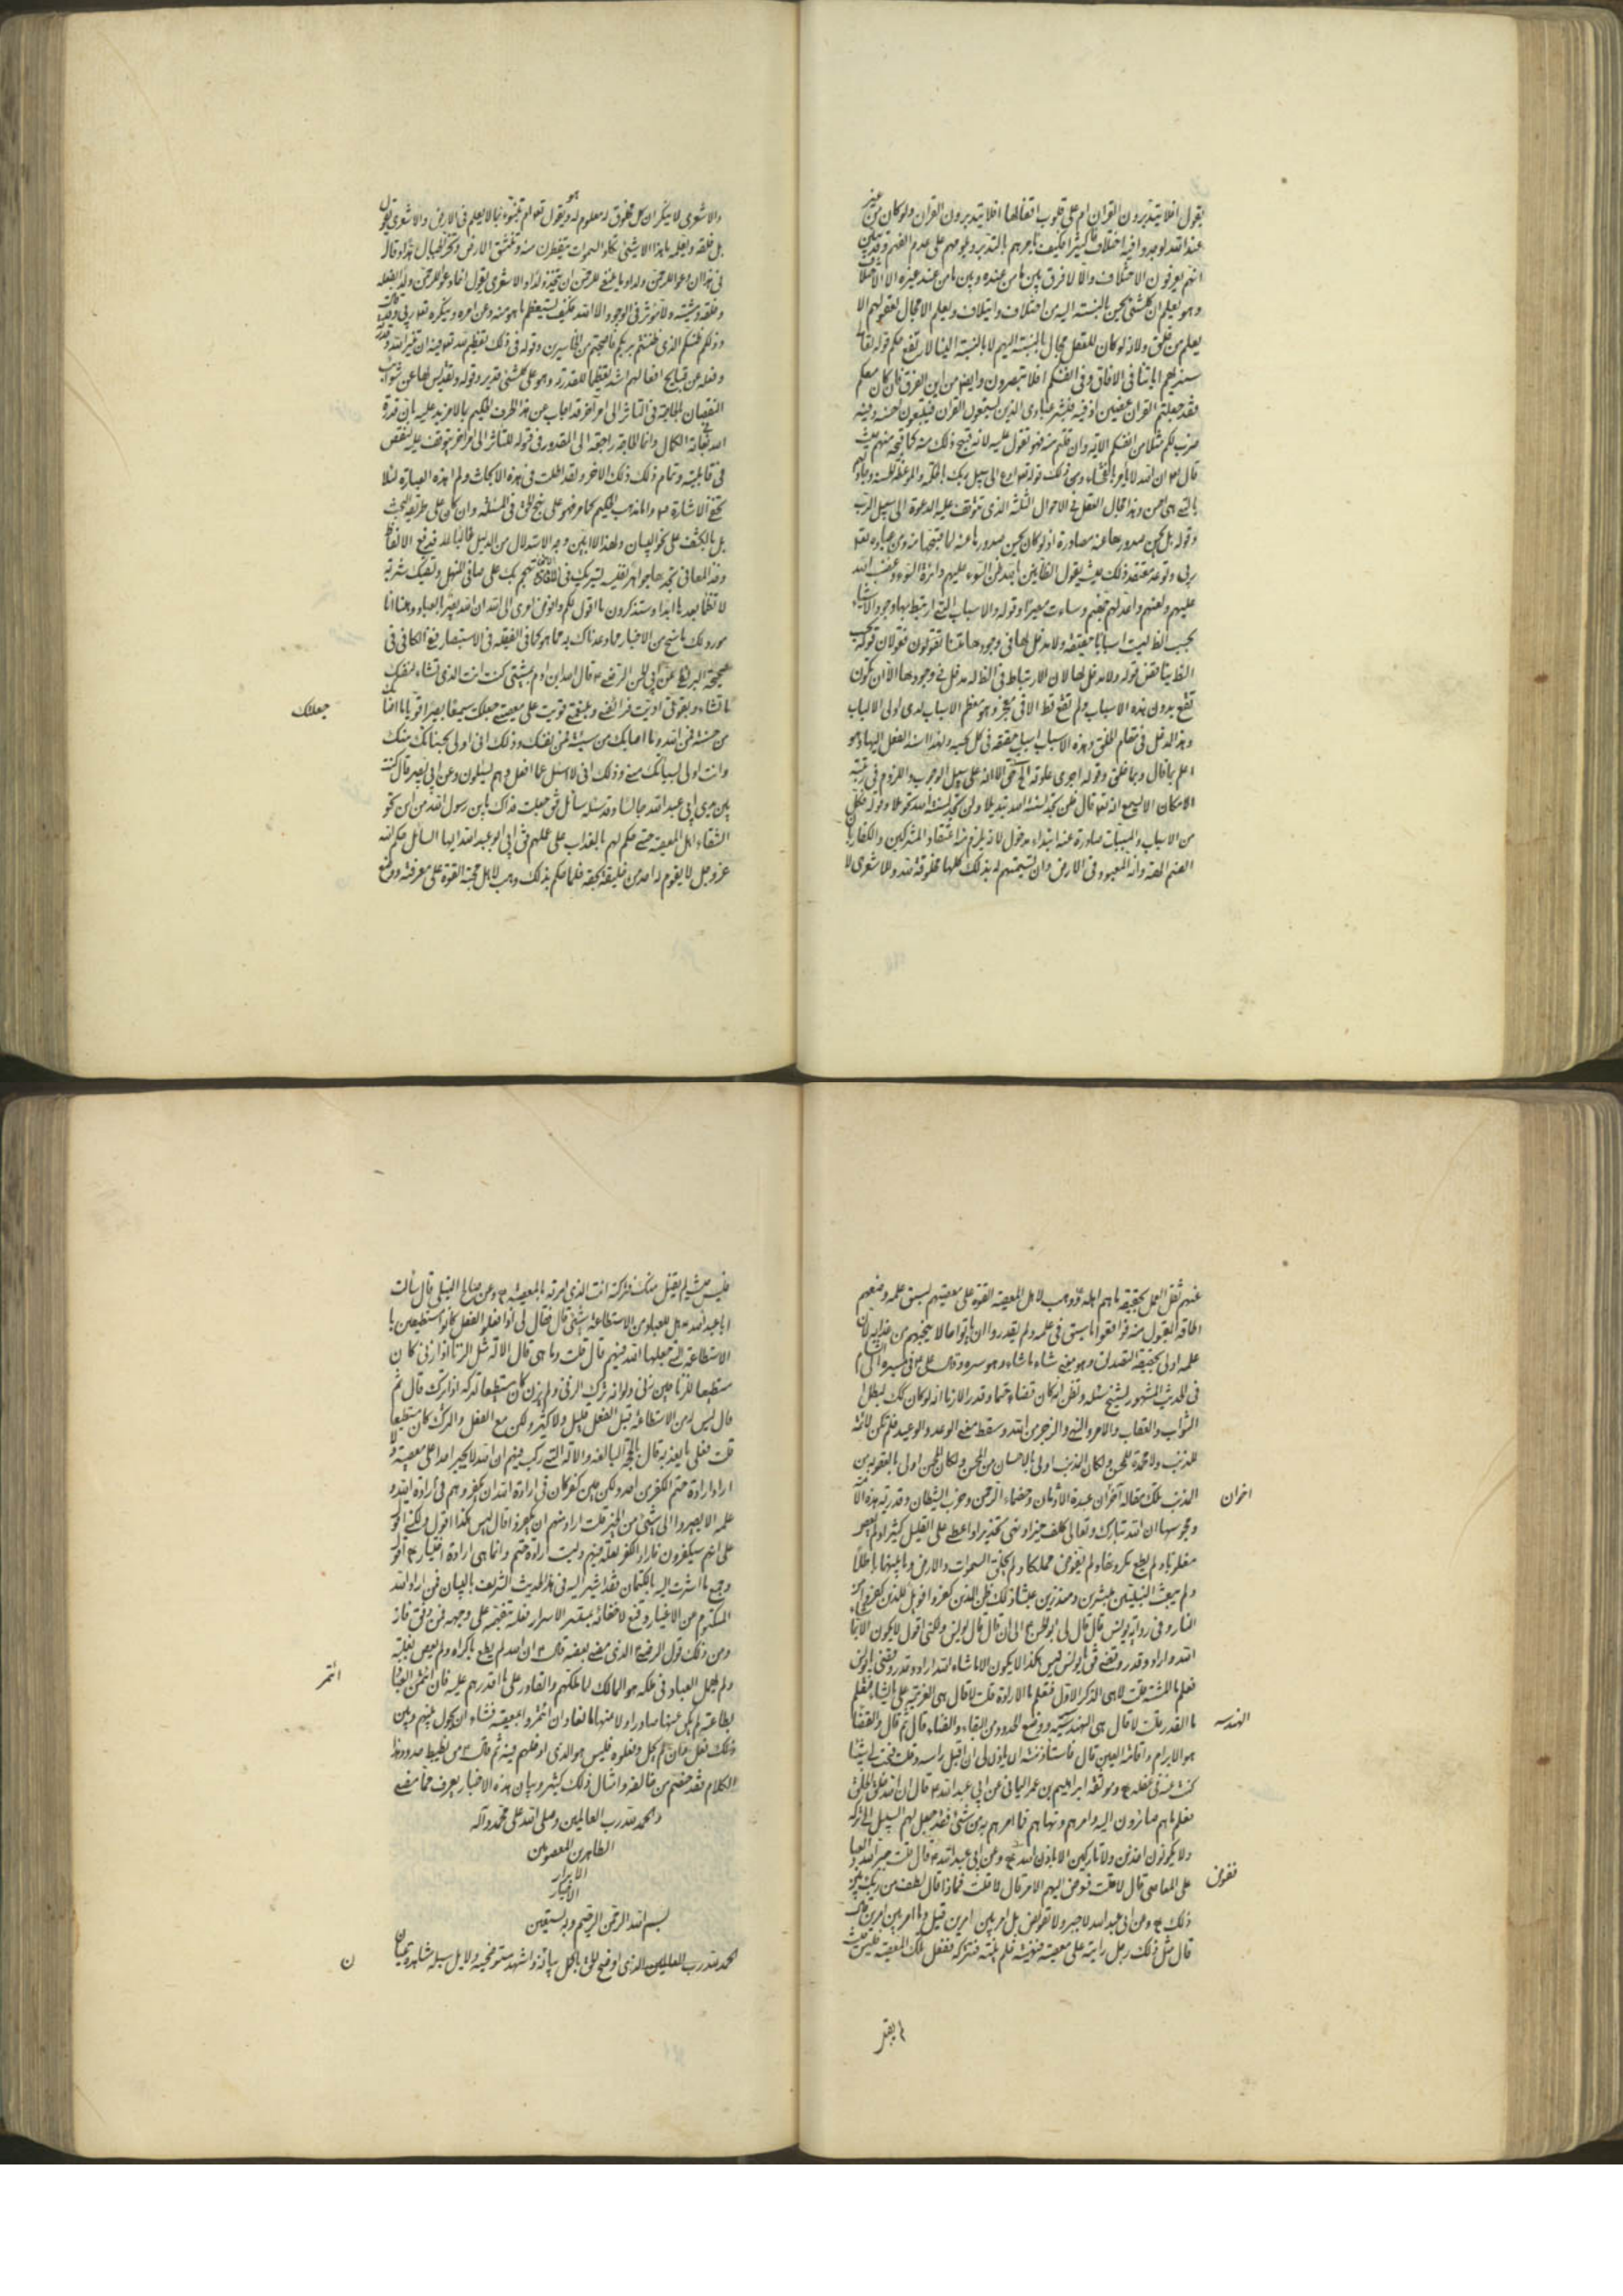 يقول افلا يتدبرون القران ام على قلوب اقفالها افلا يتدبرون القران ولو كان من غير
عند الله لوجدوا فيه اختلافا كثيرا فكيف يامرهم بالتدبر ويلومهم على عدم الفهم
انهم يعرفون الاختلاف والا لا فرق بين ما من عنده وبين ما من عند غيره الا الاختلاف
وهو تعليم ان كلشئ بالنسبة اليه من اختلاف وايتلاف ويعلم الاجمال
يعلم من خلق ولانه لو كان للعقل مجال بالنسبة اليهم لا بالنسبة الينا لا حكم قوله تعالى
سنريهم اياتنا في الافاق وفي انفسكم افلا تبصرون وايضا من اين الفرق فان كان معكم
فقد جعلتم القران عضين اذ فيه فبشر عبادي الذين يستمعون القول فيتبعون احسنه وفيه
ضرب لكم مثلا من انفسكم الاية وان قلتم منه فهو تقول عليه لانه قبح ذلك منه كما قبحه منهم حيث
قال ان الله لا يامر بالفحشاء ومن ذلك قوله ادع الى سبيل ربك بالحكمة والموعظة الحسنة وجادلهم
بالتي هي احسن وهذا مجال العقل في الاحوال الثلثة الذي تتوقف عليه الدعوة الى سبيل الرب
وقوله بل يحسن صدورها عنه مصادرة اذ لو كان يحسن صدورها عنه لما قبحها منه ومن عباده تعالى
ربي وتوعد معتقد ذلك حيث يقول الظانين بالله ظن السوء عليهم دائرة السوء وغضب الله
عليهم ولعنهم واعد لهم جهنم وساءت مصيرا وقوله والاسباب التي ارتبط بها وجود الاشياء
بحسب الظ ليست اسبابا حقيقة ولا مدخل لها في وجودها تقولون فنقول ان قوله بحسب
الظ يناقض قوله ولا مدخل لها لان الارتباط في الظ له مدخل في وجودها الا ان تكون
تقع بدون هذه الاسباب ولم تقع قط الا في معجز وهو معظم الاسباب لدى اولى الالباب
وهذا المدخل في مقام الخلق وهذه الاسباب اسباب حقيقة في كل بحسبه ولهذا اسند الفعل اليها وهو
اعلم بما قال وبما خلق وقوله اجرى عادته الخ حق الا انه على سبيل الوجوب واللزوم في رتبة
الامكان الا تسمع انه تعالى قال فلن تجد لسنة الله تبديلا ولن تجد لسنة الله تحويلا وقوله فكل
من الاسباب والمسببات صادرة عنه ابتداء مدخول لانه يلزم منه اعتقاد المشركين والكفار بان
الصنم الهة وانه المعبود في الارض وان تسميتهم له بذلك كلها مخلوقة لله والاشعري لا
والاشعري لا ينكر ان كل مخلوق له معلوم له وهو يقول تعالى ام تنبئونه بما لا يعلم في الارض والاشعري يقول
بل خلقه ويعلمه بهذا الا بشئ تكاد السموات يتفطرن منه وتنشق الارض وتخر الجبال هدا وقال
في هذا ان دعوا للرحمن ولدا وما ينبغي للرحمن ان يتخذ ولدا والاشعري يقول انما دعو للرحمن ولدا بفعله
وخلقه ومشيته ولا مؤثر في الوجود الا الله فكيف يستعظم ما هو منه وعن امره وينكره تعالى ربي وتقدس
وذلكم ظنكم الذي ظننتم بربكم فاصبحتم من الخاسرين وقوله في ذلك تعظيم لله تعالى فيه ان تنزيه الله وقدرته
وفعله عن قبايح افعالهم اشد تعظيما للقدرة وهو على كلشئ قدير وقوله وتقديس لها عن شوائب
النقصان للحاجة في التاثر الى امر آخر قد اجاب عن هذا الطرف الحكيم بالا مزيد عليه بان قدرة
الله في غاية الكمال وانما الحاجة راجعة الى المقدور في قبوله للتاثر الى امر آخر يتوقف عليه لنقص
في قابليته وتمام ذلك بذلك الاخر ولقد اطلت في هذه الابحاث ولم هذه العبارة لئلا
تخفى الاشارة واما مذهب الحكيم كما مر فهو على نهج الحق في المسئلة وان كان على طريقة البحث
بل بالكشف على نحو البيان ولهذا لا ابين وجه الاستدلال من الدليل غالبا لله فيرفع الالفاظ
وخذ المعاني تجدها جواهر نفيسة ليشربك في تهجم بك على صافي المنهل وتكفيك شربة
لا تظمأ بعدها ابدا وستذكرون ما اقول لكم وافوض امري الى الله ان الله بصير بالعباد وها انا
مورد لك ما سنح من الاخبار مما وعدناك به مما هو كاف في الفقيه في الاستبصار ففي الكافي في
صحيحة البزنطي عن ابي الحسن الرضا قال الله ابن ادم بمشيتي كنت انت الذي تشاء لنفسك
ما تشاء وبقوتي اديت فرائضي وبنعمتي قويت على معصيتي جعلك سميعا بصيرا قويا ما اصابك
جعلتك
من حسنة فمن الله وما اصابك من سيئة فمن نفسك وذلك اني اولى بحسناتك منك
وانت اولى بسيئاتك مني وذلك اني لا اسئل عما افعل وهم يسئلون وعن ابي بصير قال كنت
بين يدي ابي عبد الله جالسا وقد سئله سائل فق جعلت فداك يابن رسول الله من اين لحق
الشقاء اهل المعصية حتى حكم لهم بالعذاب على عملهم فق ابو عبد الله ايها السائل حكم الله
عزوجل لا يقوم له احد من خليقته بحقه فلما حكم بذلك وهب لاهل محبته القوة على معرفته ووضع
عنهم ثقل العمل بحقيقة ما هم اهله ووهب لاهل المعصية القوة على معصيتهم لسبق علمه ومنعهم
اطاقة القبول منه فوافقوا ما سبق في علمه ولم يقدروا ان ياتوا حالا ينجيهم من عذابه لان
علمه اولى بحقيقة التصديق وهو معنى شاء ما شاء وهو سره
في الحديث المشهور لشيخ سئله وتظن انه كان قضاء حتما وقدرا لازما انه لو كان كك لبطل
الثواب والعقاب والامر والنهي والزجر من الله وسقط معنى الوعد والوعيد فلم تكن لائمة
للمذنب ولا محمدة للمحسن ولكان المذنب اولى بالاحسان من المحسن ولكان المحسن اولى بالعقوبة من
المذنب تلك مقالة اخوان عبدة الاوثان وخصماء الرحمن وحزب الشيطان وقدرية هذه الامة
اخوان
ومجوسها ان الله تبارك وتعالى كلف تخييرا ونهى تحذيرا واعطى على القليل كثيرا ولم يعص
مغلوبا ولم يطع مكرها ولم يفوض مملكا ولم يخلق السموات والارض وما بينهما باطلا
ولم يبعث النبيين مبشرين ومنذرين عبثا ذلك ظن الذين كفروا فويل للذين كفروا من
النار وفي رواية يونس قال قال لي ابو الحسن الى ان قال قال يونس ولكني اقول لا يكون الا بما شاء
الله واراد وقدر وقضى فق يا يونس ليس هكذا لا يكون الا ما شاء الله واراد وقدر وقضى يا يونس
فعلم ما المشية قلت لا قال هي الذكر الاول فتعلم ما الارادة قلت لا قال هي العزيمة على ما يشاء فتعلم
ما القدر قلت لا قال هي الهندسة ووضع الحدود من البقاء والفناء قال ثم قال والقضاء
الهندسه
هو الابرام واقامة العين قال فاستاذنته ان ياذن لي ان اقبل راسه وقلت فتحت لي شيئا
كنت عنه في غفلة وموثقة ابراهيم بن عمر اليماني عن ابي عبد الله قال ان الله خلق الخلق
فعلم ما هم صائرون اليه وامرهم ونهاهم فما امرهم به من شئ فقد جعل لهم السبيل الى تركه
ولا يكونون اخذين ولا تاركين الا باذن الله وعن ابي عبد الله قال قلت جبر الله العباد
على المعاصي قال لا قلت فوض اليهم الامر قال لا قلت فماذا قال لطف من ربك بين
ففوض
ذلك وعن ابي عبد الله لا جبر ولا تفويض بل امر بين امرين قيل وما امر بين امرين
قال مثل ذلك رجل رايته على معصية فنهيته فلم ينته فتركته ففعل تلك المعصية فليس حيث
لم يقبل
فليس حيث لم يقبل منك فتركته انت الذي امرته بالمعصية وعن صالح النيلي قال سألت
ابا عبد الله هل للعباد من الاستطاعة شئ قال فقال لي اذا فعلوا الفعل كانوا مستطيعين با
الاستطاعة التي جعلها الله فيهم قال قلت وما هي قال الالة مثل الزنا اذا زنى كان
مستطيعا للزنا حين زنى ولو انه ترك الزنى ولم يزن كان مستطيعا لتركه اذا ترك قال ثم
قال ليس له من الاستطاعة قبل الفعل قليل ولا كثير ولكن مع الفعل والترك كان مستطيعا
قلت فعلى ما يعذبه قال بالحجة البالغة والالة التي ركب فيهم ان الله لا يجبر احدا على معصيته ولا
اراد ارادة حتم الكفر من احد ولكن حين كفر كان في ارادة الله ان يكفر وهم في ارادة الله و
علمه الا يصيروا الى شئ من الخير قلت اراد منهم ان يكفروا قال ليس هكذا اقول ولكني اقول
علم انهم سيكفرون فاراد الكفر لعلمه فيهم وليست ارادة حتم وانما هي ارادة اختيار اقول
وجميع ما اشرت اليه بالكتمان فقد اشير اليه في هذا الحديث الشريف بالبيان فمن اراد الله
المكتوم من الاغيار وقنع لاخفائه بمستسر الاسرار فعليه بتفهمه على وجهه فمن وفق فاز
ومن ذلك قول الرضا الذي مضى بعضه ان الله لم يطع باكراه ولم يعص بغلبة
ولم يهمل العباد في ملكه هو المالك لما ملكهم والقادر على ما اقدرهم عليه فان ائتمر العباد
ائتمر
بطاعته لم يكن عنها صادا ولا منها مانعا وان ائتمروا بمعصية فشاء ان يحول بينهم وبين
ذلك فعل وان لم يحل وفعلوه فليس هو الذي ادخلهم فيه ثم قال من يضبط حدود هذا
الكلام فقد خصم من خالفه وامثال ذلك كثير وبيان هذه الاخبار يعرف مما مضى
والحمد لله رب العالمين وصلى الله على محمد وآله
الطاهرين المعصومين
الابرار
الاخيار
بسم الله الرحمن الرحيم وبه نستعين
الحمد لله رب العالمين الذي اوضح للخلق
ن